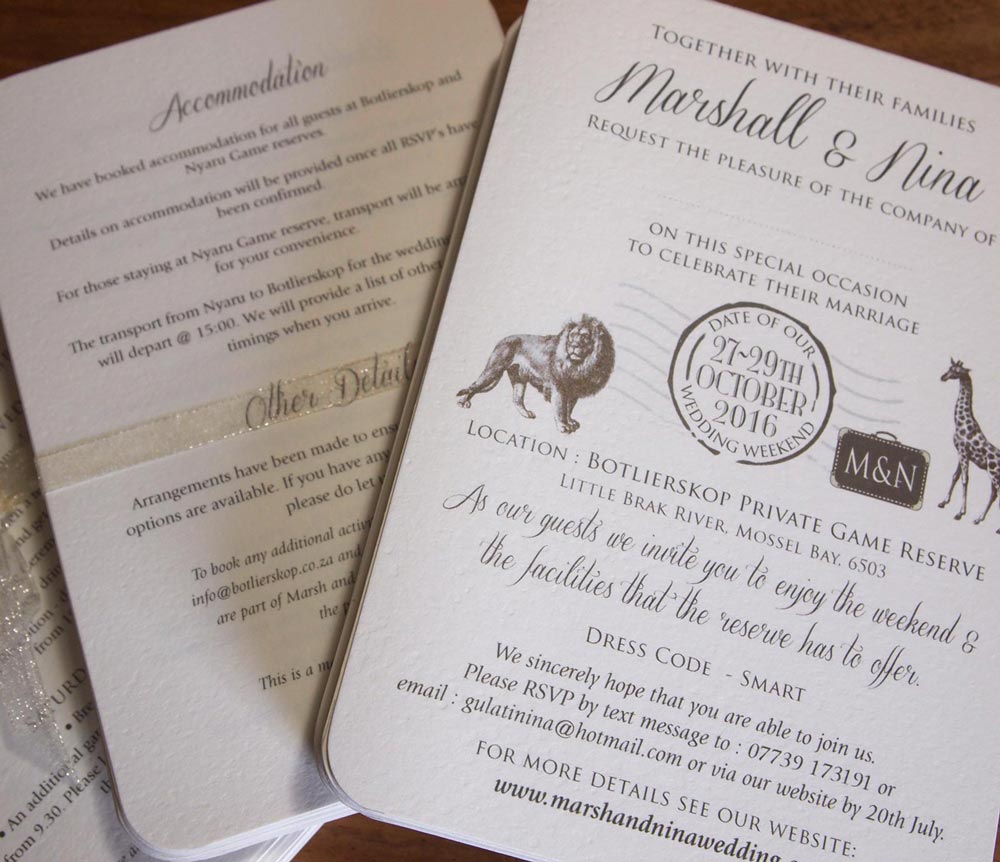 Accommodation
We have booked accommodation for all guests at Botlierskop and
Nyaru Game reserves.
Details on accommodation will be provided once all RSVP's have
been confirmed.
For those staying at Nyaru Game reserve, transport will be
for your convenience.
The transport from Nyaru to Botlierskop for the wedding
will depart @ 15:00. We will provide a list of other
timings when you arrive.
Other
Arrangements have been made to
options are available. If you have any
please do let
To book any additional
info@botlierskop.co.za and
are part of Marsh and
the
This is a
from
• An additional
from 9.30. Please
TOGETHER WITH THEIR FAMILIES
Marshall & Nina
REQUEST THE PLEASURE OF THE COMPANY OF
ON THIS SPECIAL OCCASION
TO CELEBRATE THEIR MARRIAGE
DATE OF OUR
27~29TH
OCTOBER
2016
WEDDING WEEKEND
M&N
LOCATION : BOTLIERSKOP PRIVATE GAME RESERVE
LITTLE BRAK RIVER, MOSSEL BAY. 6503
As our guests we invite you to enjoy the weekend &
the facilities that the reserve has to offer.
DRESS CODE - SMART
We sincerely hope that you are able to join us.
Please RSVP by text message to : 07739 173191 or
email : gulatinina@hotmail.com or via our website by 20th July.
FOR MORE DETAILS SEE OUR WEBSITE:
www.marshandninawedding.